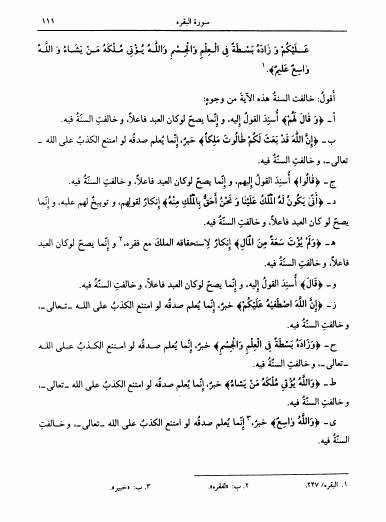 سورة البقره ١١١
عَلَيْكُمْ وَ زَادَهُ بَسْطَةً فِي الْعِلْمِ وَالْجِسْمِ وَاللَّهُ يُؤْتِي مُلْكَهُ مَنْ يَشَاءُ وَ اللَّهُ
وَاسِعٌ عَلِيمٌ﴾.١
أقولُ: خالفت السنةُ هذه الآيةَ من وجوهٍ:
أ ـ ﴿وَ قَالَ لَهُمْ﴾ أُسنِدَ القولُ إليه، و إنّما يصحّ لوكان العبد فاعلاً، و خالفتِ السنّةُ فيه.
ب ـ ﴿إِنَّ اللَّهَ قَدْ بَعَثَ لَكُمْ طَالُوتَ مَلِكاً﴾ خبرٌ، إنّما يُعلم صدقُه لو امتنع الكذبُ على الله ـ
تعالى ـ، و خالفتِ السنّةُ فيه.
ج ـ ﴿قَالُوا﴾ أُسنِدَ القولُ إليهم، و إنّما يصحّ لوكان العبد فاعلاً، و خالفتِ السنّةُ فيه.
د ـ ﴿أَنَّى يَكُونُ لَهُ الْمُلْكُ عَلَيْنَا وَ نَحْنُ أَحَقُّ بِالْمُلْكِ مِنْهُ﴾ إنكارٌ لقولِهم، و توبيخٌ لهم عليه، و إنّما
يصحّ لو كان العبد فاعلاً، و خالفتِ السنّةُ فيه.
هـ ـ ﴿وَلَمْ يُؤْتَ سَعَةً مِنَ الْمَالِ﴾ إنكارٌ لاستحقاقه الملكَ مع فقره،٢ و إنّما يصحّ لوكان العبد
فاعلاً، و خالفتِ السنّةُ فيه.
و ـ ﴿قَالَ﴾ أُسنِدَ القولُ إليه، و إنّما يصحّ لوكان العبد فاعلاً، و خالفتِ السنّةُ فيه.
ز ـ ﴿إِنَّ اللَّهَ اصْطَفَيهُ عَلَيْكُمْ﴾ خبرٌ، إنّما يُعلم صدقُه لو امتنع الكذبُ على الله ـ تعالى ـ،
و خالفتِ السنّةُ فيه.
ح ـ ﴿وَزَادَهُ بَسْطَةً فِي الْعِلْمِ وَالْجِسْمِ﴾ خبرٌ، إنّما يُعلم صدقُه لو امتنع الكذبُ على الله
ـ تعالى ـ، و خالفتِ السنّةُ فيه.
ط ـ ﴿وَاللَّهُ يُؤْتِي مُلْكَهُ مَنْ يَشَاءُ﴾ خبرٌ، إنّما يُعلم صدقُه لو امتنع الكذبُ على الله ـ تعالى ـ،
و خالفتِ السنّةُ فيه.
ى ـ ﴿وَاللَّهُ وَاسِعٌ﴾ خبرٌ،٣ إنّما يُعلم صدقُه لو امتنع الكذبُ على الله ـ تعالى ـ، و خالفتِ
السنّةُ فيه.
١. البقره/ ٢٤٧. ٢. ب: «لفقره». ٣. ب: «خبير».